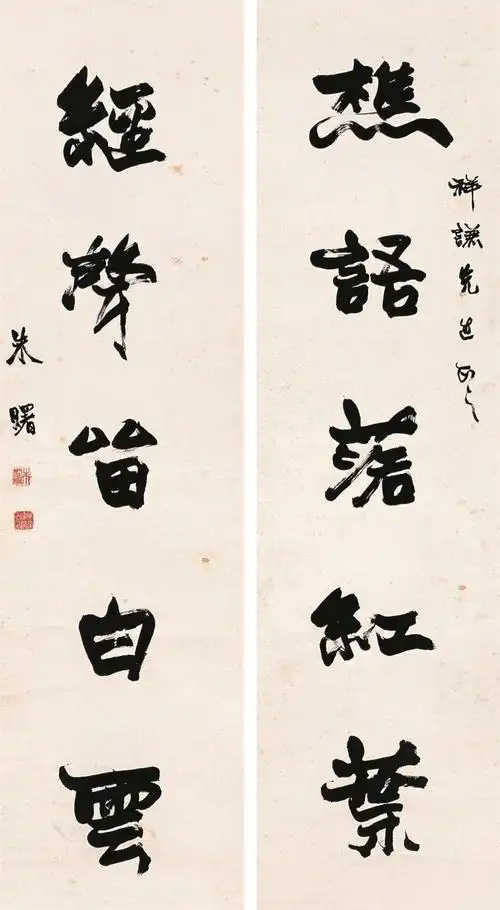 祥謙先生正之
樵語落紅葉
經聲留白雲
朱曙